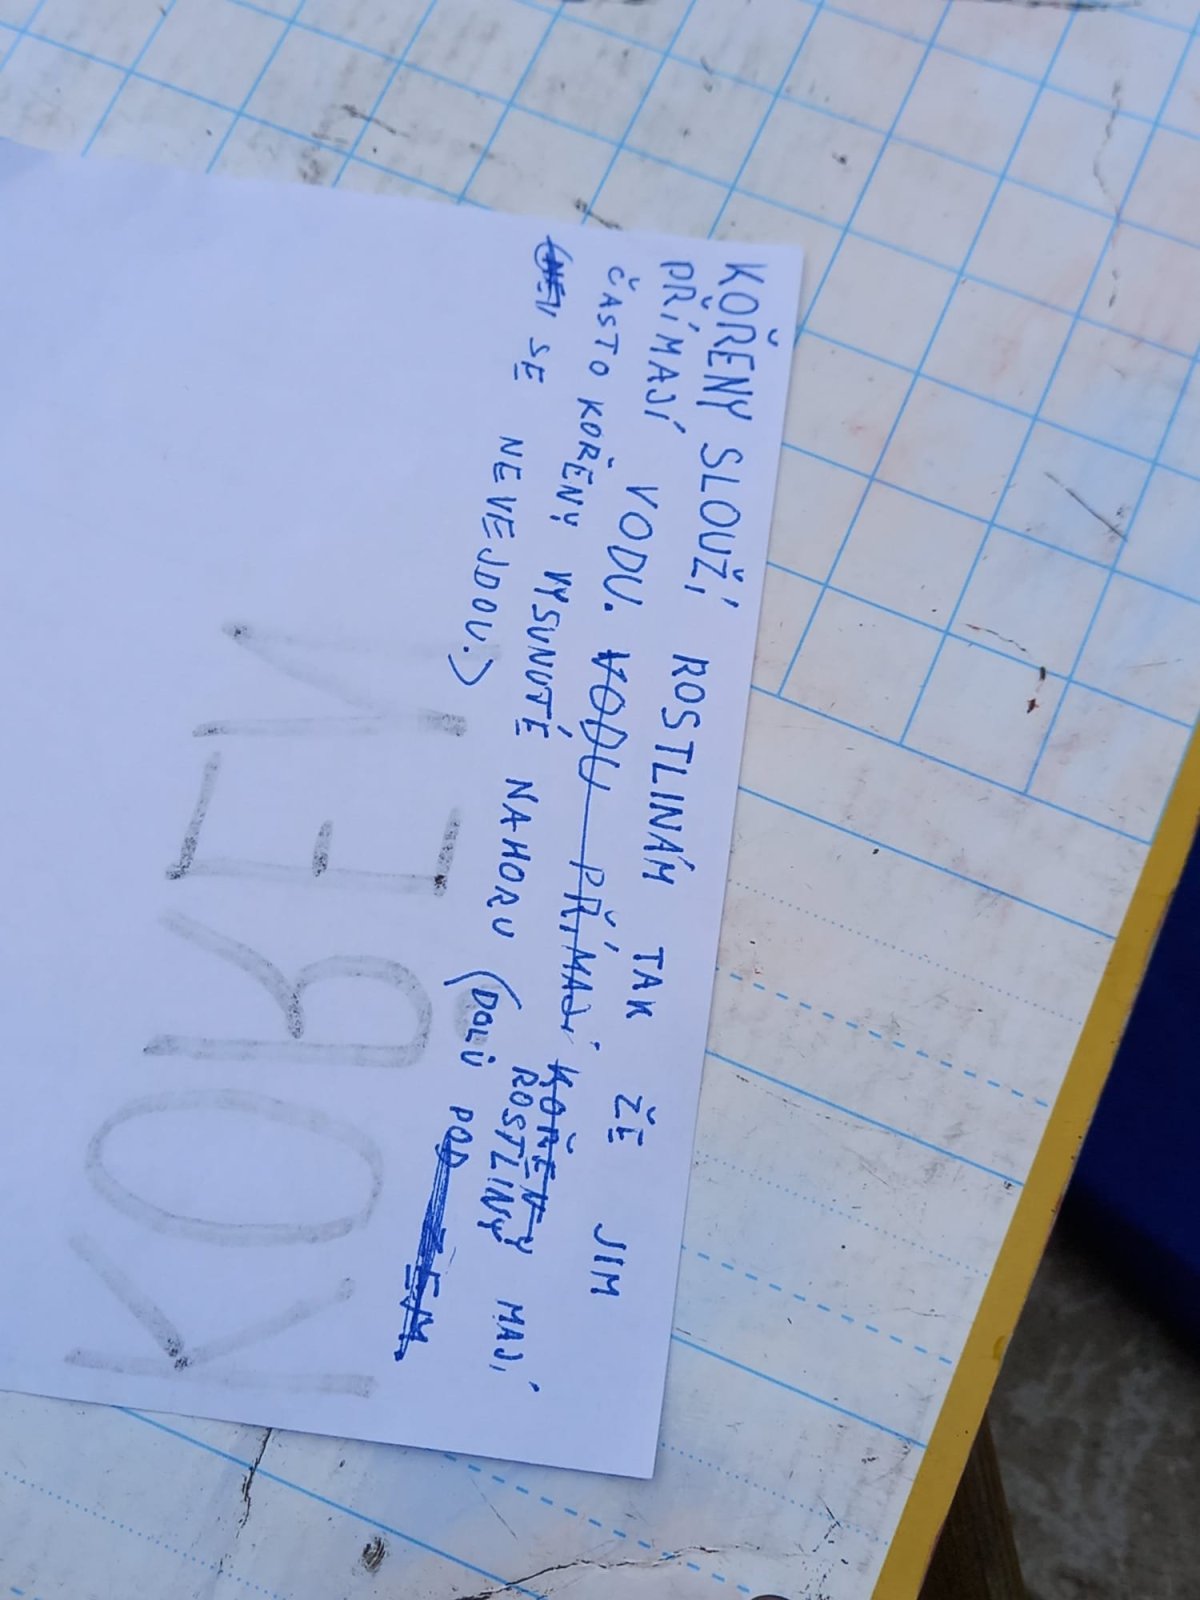 KOŘENY SLOUŽÍ ROSTLINÁM TAK ŽE JIM
PŘÍMAJÍ VODU. VODU PŘÍMAJÍ KOŘENY
ROSTLINY MAJÍ
ČASTO KOŘENY VYSUNUTÉ NAHORU (DOLŮ POD ZEM
SE NEVEJDOU.)
KOŘEN